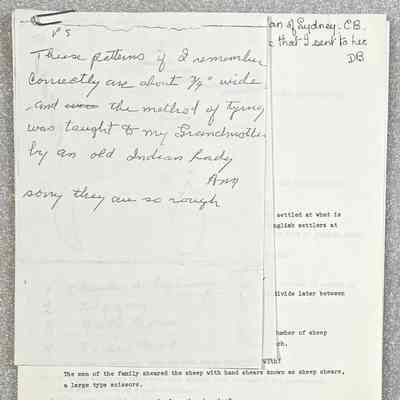 P S
These patterns if I remember
correctly are about 3/4" wide
and the method of tying
was taught to my Grandmother
by an old Indian Lady
Ann
sorry they are so rough
an of Sydney. C.B.
that I sent to her
DB
settled at what is
nglish settlers at
divide later between
umber of sheep
ch.
The men of the family sheared the sheep with hand shears known as sheep shears,
a large type scissors.